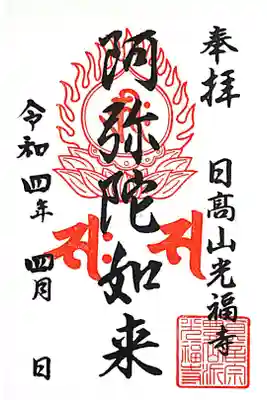 奉拝
日髙山光福寺
阿弥陀如来
令和四年 四月 日